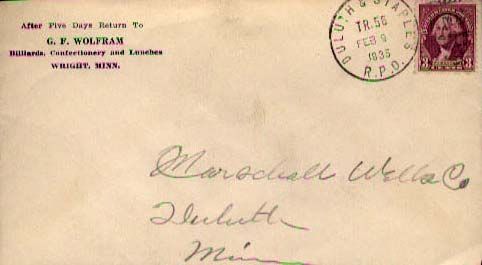 After Five Days Return To
G. F. WOLFRAM
Billiards, Confectionery and Lunches
WRIGHT, MINN.
DULUTH & STAPLES
TR. 56
FEB 9
1935
R.P.O.
3 3
Marschall Wells Co
Duluth
Minn